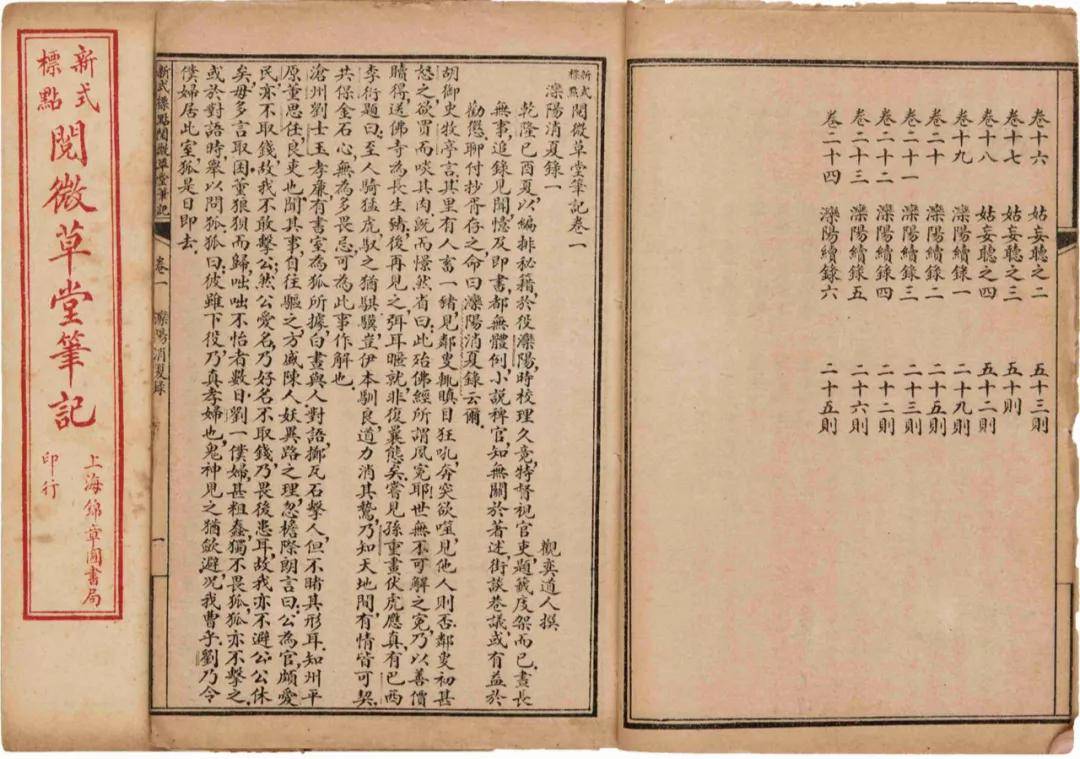 卷十六 姑妄聽之二 五十三則
卷十七 姑妄聽之三 五十則
卷十八 姑妄聽之四 五十二則
卷十九 灤陽續錄一 二十九則
卷二十 灤陽續錄二 二十五則
卷二十一 灤陽續錄三 二十三則
卷二十二 灤陽續錄四 二十二則
卷二十三 灤陽續錄五 二十六則
卷二十四 灤陽續錄六 二十五則
新式標點 閱微草堂筆記卷一
灤陽消夏錄一 觀奕道人撰
乾隆己酉夏,以編排秘籍,於役灤陽,時校理久竟,特督視官吏,題籤庋架而已.晝長
無事,追錄見聞,憶及即書,都無體例,小說稗官,知無關於著述,街談巷議,或有益於
勸懲,聊付抄胥存之,命曰灤陽消夏錄云爾.
胡御史牧亭言,其里有人畜一豬,見鄰叟輒瞋目狂吼,奔突欲噬,見他人則否,鄰叟初甚
怒之,欲買而啖其肉,既而憬然省曰,此殆佛經所謂夙冤耶,世無不可解之冤,乃以善價
贖得,送佛寺為長生豬,後再見之,弭耳暱就,非復曩態矣,嘗見孫重畫伏虎應真,有巴西
李衍題曰,至人騎猛虎,馭之猶騏驥,豈伊本馴良,道力消其鷙,乃知天地間,有情皆可契,
共保金石心,無為多畏忌,可為此事作解也.
滄州劉士玉孝廉,有書室為狐所據,白晝與人對語,擲瓦石擊人,但不睹其形耳.知州平
原董思任,良吏也,聞其事,自往驅之,方盛陳人妖異路之理,忽檐際朗言曰,公為官,頗愛
民,亦不取錢,故我不敢擊公,然公愛民,乃好名,不取錢,乃畏後患耳,故我亦不避公,公休
矣,毋多言取困,董狼狽而歸,咄咄不怡者數日,劉一僕婦,甚粗蠢,獨不畏狐,狐亦不擊之.
或於對語時,舉以問狐,狐曰,彼雖下役,乃真孝婦也,鬼神見之猶斂避,況我曹乎,劉乃令
僕婦居此室,狐是日即去.
新式標點閱微草堂筆記 卷一 灤陽消夏錄 一
新式標點
閱微草堂筆記
上海錦章圖書局
印行